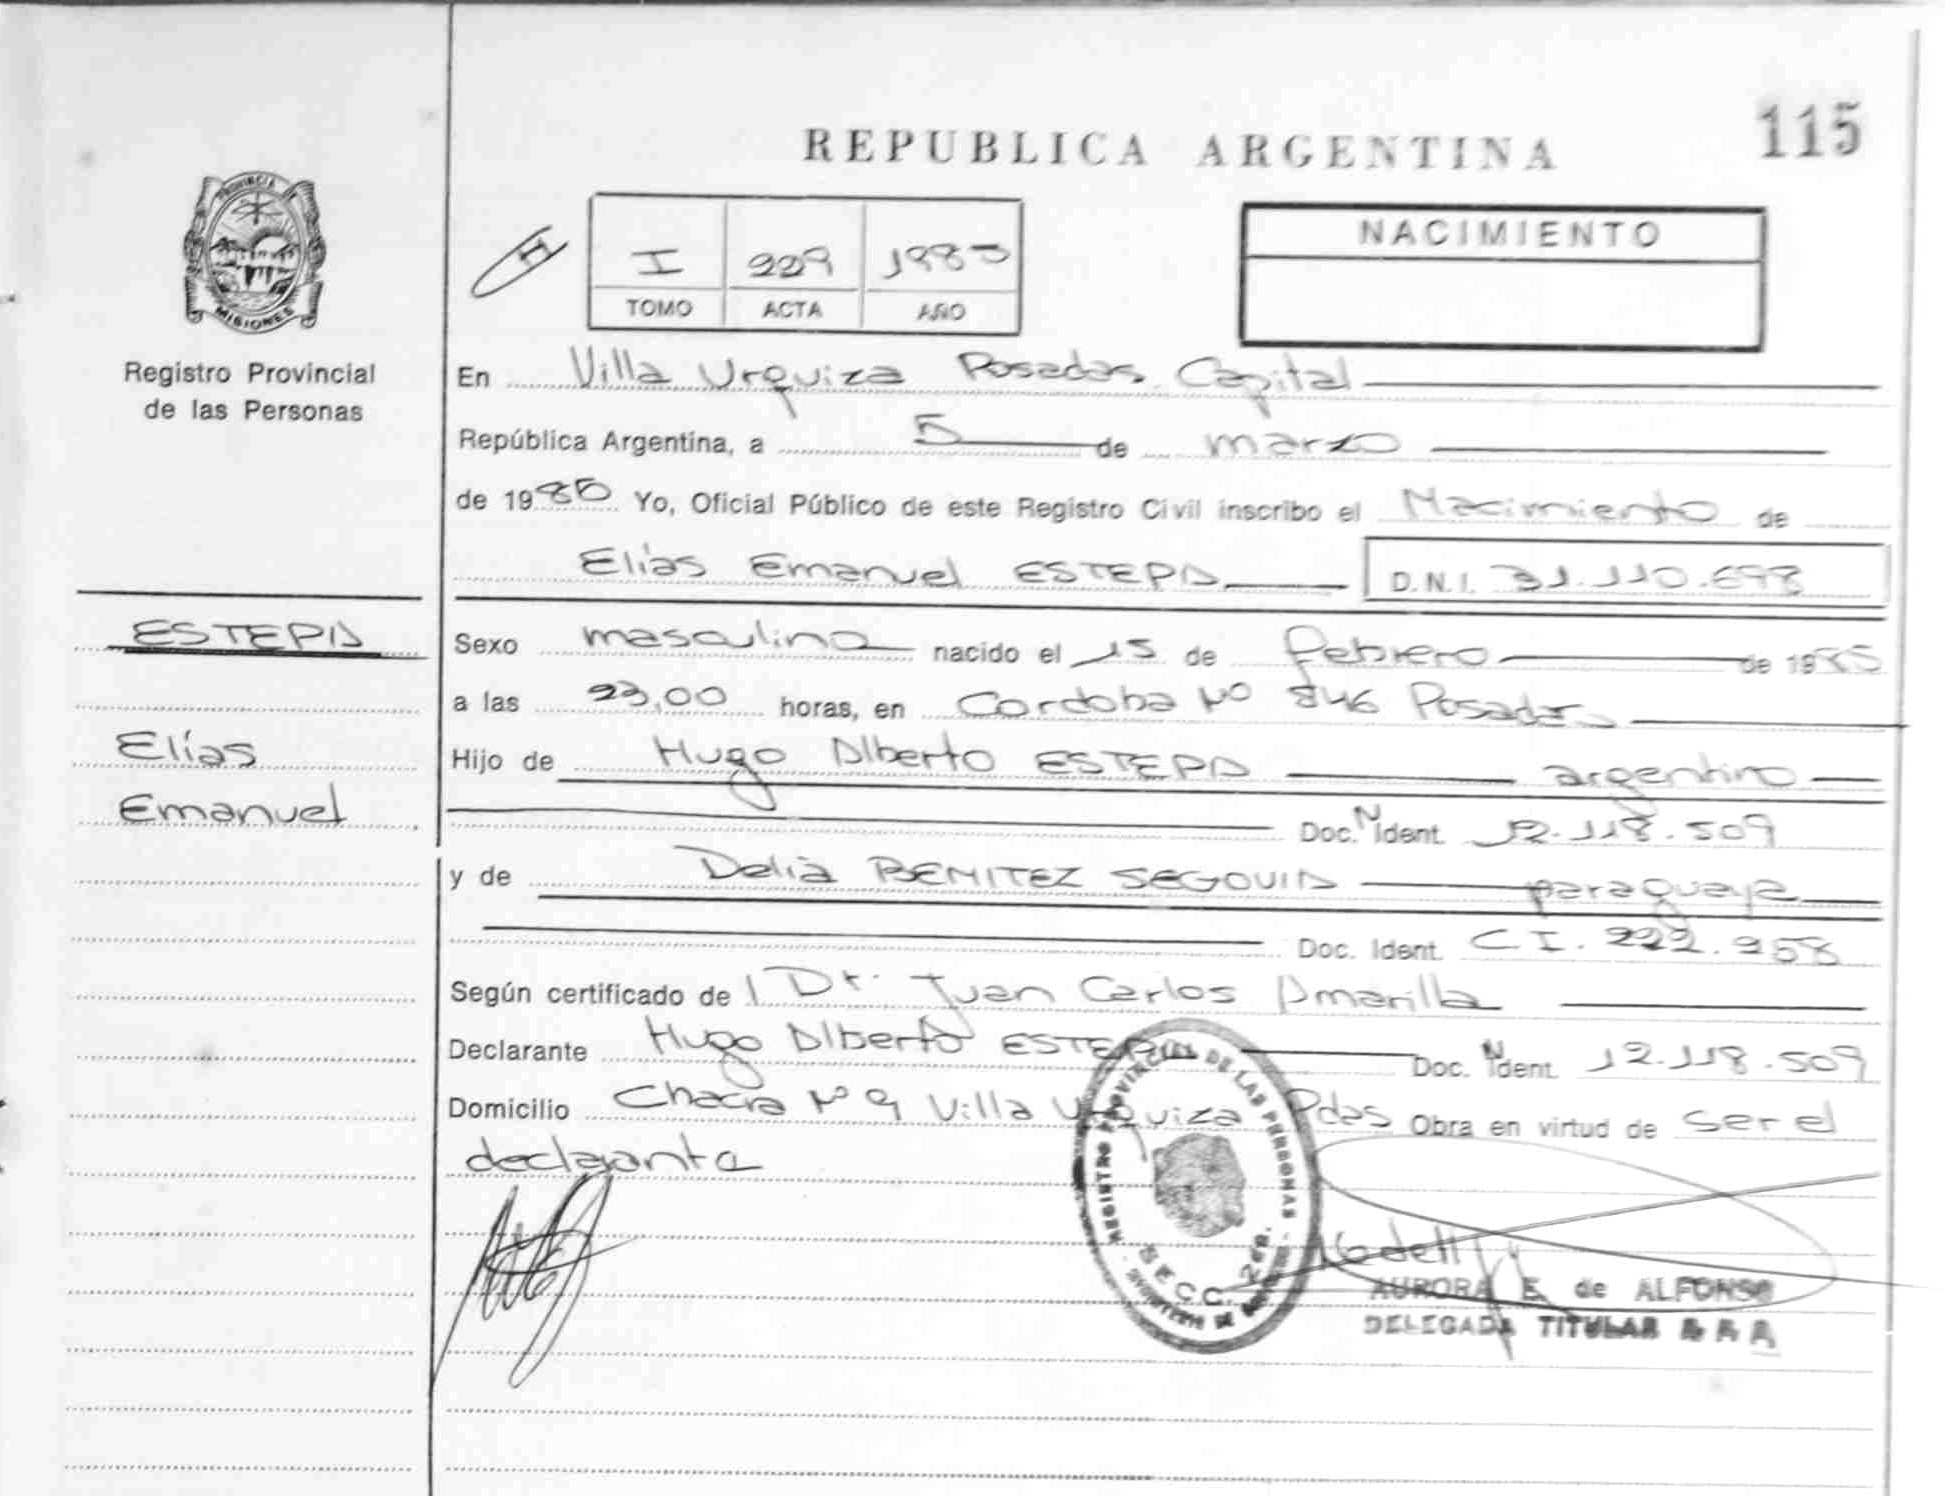 115
REPUBLICA ARGENTINA
PROVINCIA
MISIONES
Registro Provincial
de las Personas
I 229 1985
TOMO ACTA AÑO
NACIMIENTO
En Villa Urquiza Posadas Capital
República Argentina, a 5 de marzo
de 1985 Yo, Oficial Público de este Registro Civil inscribo el Nacimiento de
Elías Emanuel ESTEPA D.N.I. 31.110.698
ESTEPA
Elías
Emanuel
Sexo masculino nacido el 15 de febrero de 1985
a las 23,00 horas, en Cordoba Nº 846 Posadas
Hijo de Hugo Alberto ESTEPA argentino
Doc. N Ident. 12.118.509
y de Delia BENITEZ SEGOVIA paraguaya
Doc. Ident. C I. 222.958
Según certificado de l Dr. Juan Carlos Amarilla
Declarante Hugo Alberto ESTEPA Doc. N Ident. 12.118.509
Domicilio Chacra Nº 9 Villa Urquiza Pdas Obra en virtud de ser el
declarante
REGISTRO PROVINCIAL DE LAS PERSONAS
SECC. 268.
AURORA E. de ALFONSO
DELEGADA TITULAR